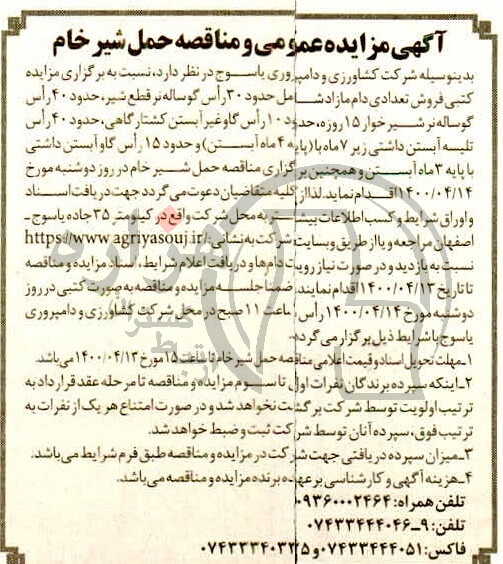 آگهی مزایده عمومی و مناقصه حمل شیر خام
بدینوسیله شرکت کشاورزی و دامپروری یاسوج در نظر دارد، نسبت به برگزاری مزایده
کتبی فروش تعدادی دام مازاد شامل حدود ۳۰ رأس گوساله نر قطع شیر، حدود ۴۰ رأس
گوساله نر شیر خوار ۱۵ روزه، حدود ۱۰ رأس گاو غیر آبستن کشتارگاهی، حدود ۴۰ رأس
تلیسه آبستن داشتی زیر ۷ ماه با (پایه ۴ ماه آبستن) و حدود ۱۵ رأس گاو آبستن داشتی
با پایه ۳ ماه آبستن و همچنین برگزاری مناقصه حمل شیر خام در روز دوشنبه مورخ
۱۴۰۰/۰۴/۱۴ اقدام نماید. لذا از کلیه متقاضیان دعوت می گردد جهت دریافت اسناد
و اوراق شرایط و کسب اطلاعات بیشتر به محل شرکت واقع در کیلومتر ۳۵ جاده یاسوج -
اصفهان مراجعه و یا از طریق وبسایت شرکت به نشانی: https://www.agriyasouj.ir/
نسبت به بازدید و در صورت نیاز رویت دام‌ها و دریافت اعلام شرایط، اسناد مزایده و مناقصه
تا تاریخ ۱۴۰۰/۰۴/۱۳ اقدام نمایند. ضمنا جلسه مزایده و مناقصه به صورت کتبی در روز
دوشنبه مورخ ۱۴۰۰/۰۴/۱۴ رأس ساعت ۱۱ صبح در محل شرکت کشاورزی و دامپروری
یاسوج با شرایط ذیل برگزار می گردد.
۱- مهلت تحویل اسناد و قیمت اعلامی مناقصه حمل شیر خام تا ساعت ۱۵ مورخ ۱۴۰۰/۰۴/۱۳ می باشد.
۲- اینکه سپرده برندگان نفرات اول تا سوم مزایده و مناقصه تا مرحله عقد قرارداد به
ترتیب اولویت توسط شرکت برگشت نخواهد شد و در صورت امتناع هر یک از نفرات به
ترتیب فوق، سپرده آنان توسط شرکت ثبت و ضبط خواهد شد.
۳- میزان سپرده دریافتی جهت شرکت در مزایده و مناقصه طبق فرم شرایط می باشد.
۴- هزینه آگهی و کارشناسی بر عهده برنده مزایده و مناقصه می باشد.
تلفن همراه: ۰۹۳۶۰۰۰۲۴۶۴
تلفن: ۹-۰۷۴۳۳۴۴۴۰۴۶
فاکس: ۰۷۴۳۳۴۴۴۰۵۱ و ۰۷۴۳۳۳۴۰۳۳۵